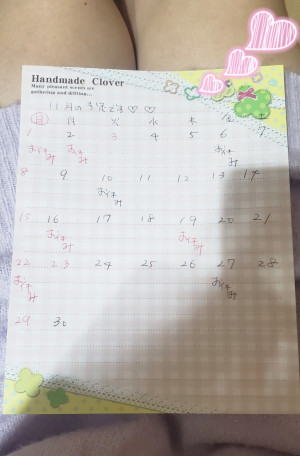 Handmade Clover
Many pleasant scents are
gathering and drifting...
11月の予定です♡♡
日 月 火 水 木 金 土
1 2 3 4 5 6 7
おやす おやす おやす
み み み
8 9 10 11 12 13 14
おやす
み
15 16 17 18 19 20 21
おやす おやす
み み
22 23 24 25 26 27 28
おやす おやす
み み
29 30